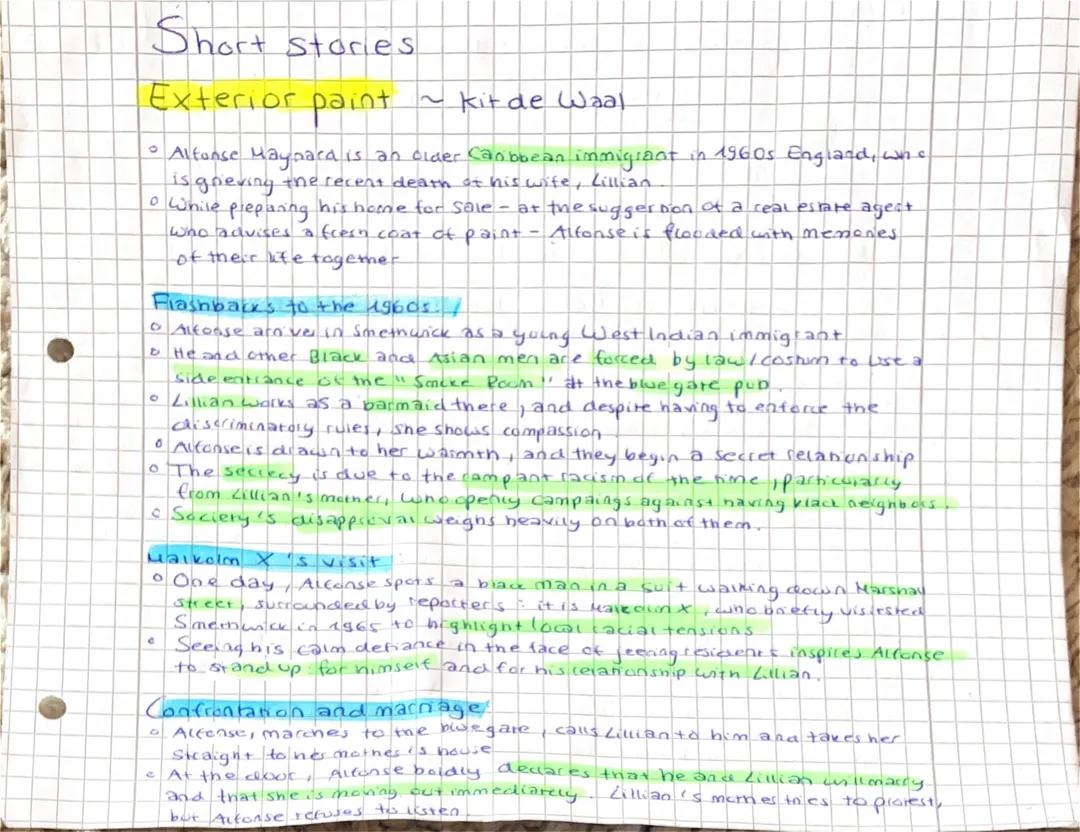 Short stories
Exterior paint ~ Kit de Waal
° Alfonse Maynard is an older Caribbean immigrant in 1960s England, who
is grieving the recent death of his wife, Lillian.
° While preparing his home for sale - at the suggestion of a real estate agent
who advises a fresh coat of paint - Alfonse is flooded with memories
of their life together
Flashbacks to the 1960s:
° Alfonse arrives in Smethwick as a young West Indian immigrant
° He and other Black and Asian men are forced by law/costum to use a
side entrance of the "Smoke Room" at the blue gate pub.
° Lillian works as a barmaid there, and despite having to enforce the
discriminatory rules, she shows compassion
° Alfonse is drawn to her warmth, and they begin a secret relationship
° The secrecy is due to the rampant racism of the time, particularly
from Lillian's mother, who openly campaings against having black neighbors.
° Society's disapproval weighs heavily on both of them.
Malkolm X's visit
° One day, Alfonse spots a black man in a suit walking down Marshal
street, surrounded by reporters: it is Malcolm X, who briefly visisted
Smethwick in 1965 to highlight local racial tensions
° Seeing his calm defiance in the face of jeering residents inspires Alfonse
to stand up for himself and for his relationship with Lillian.
Confrontation and marriage:
° Alfonse, marches to the blue gate, calls Lillian to him and takes her
straight to her mother's house
° At the door, Alfonse boldly declares that he and Lillian will marry
and that she is moving out immediately. Lillian's mother tries to protest,
but Alfonse refuses to listen.